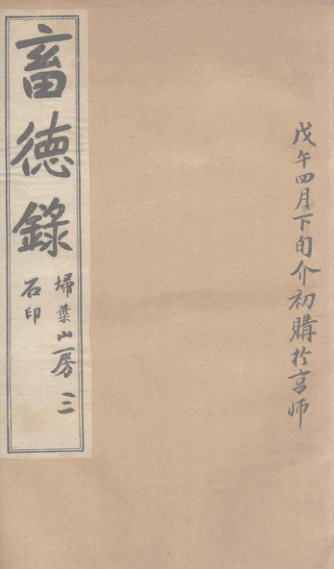 戊午四月下旬介初購於京师
畜德錄
掃葉山房 三
石印